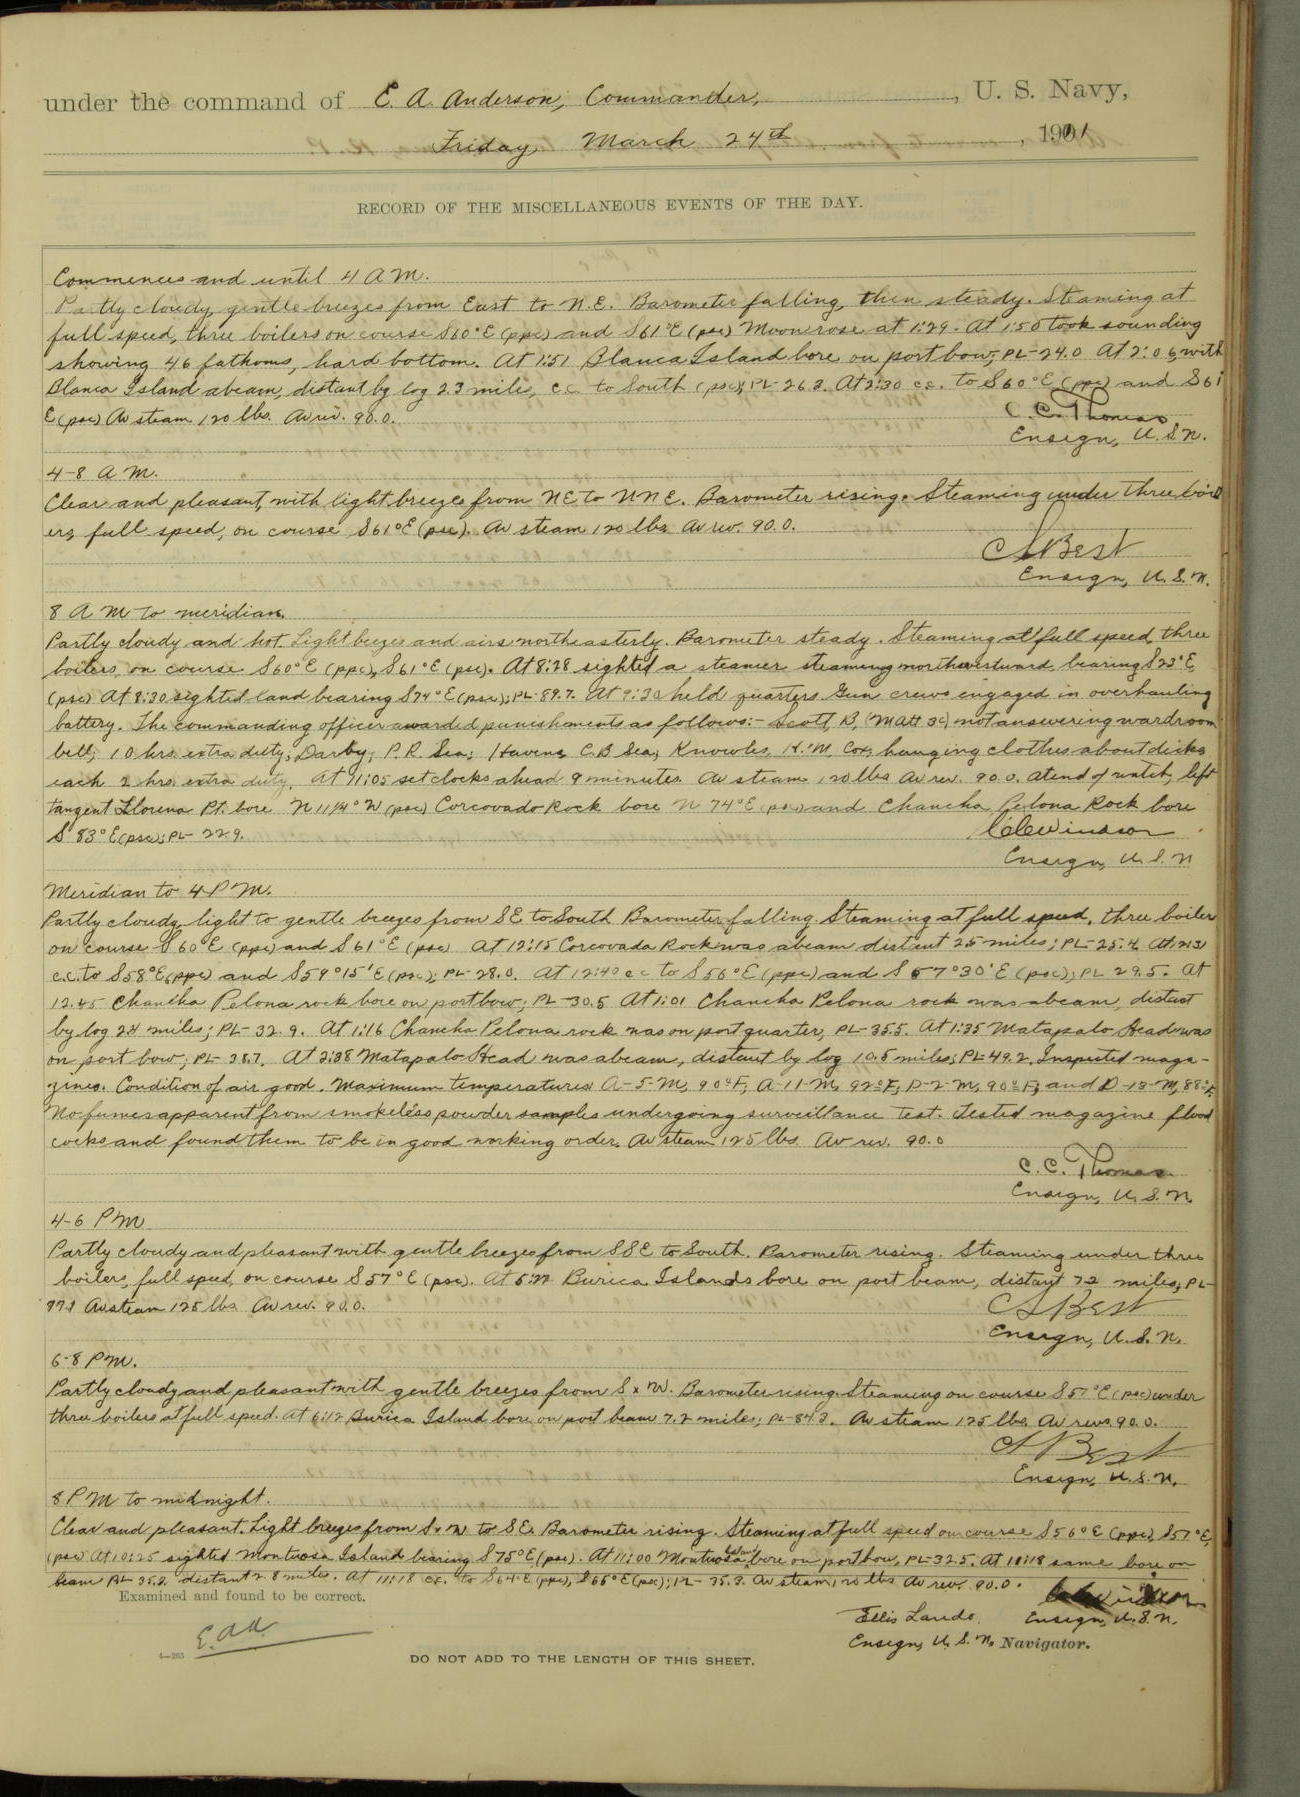 under the command of E. A. Anderson, Commander, , U. S. Navy,
Friday, March 24th , 1911
RECORD OF THE MISCELLANEOUS EVENTS OF THE DAY.
Commences and until 4 A M.
Partly cloudy, gentle breezes from East to N.E. Barometer falling, then steady. Steaming at
full speed, three boilers on course S60°E (ppc) and S61°E (psc) Moon rose at 1:29. At 1:50 took sounding
showing 46 fathoms, hard bottom. At 1:51 Blanca Island bore on port bow; PL-24.0 At 2:06, with
Blanca Island abeam, distant by log 2.3 mile, c.c. to South (psc); PL-26.2. At 2:30 c.c. to S60°E (ppc) and S61
E (psc) Av steam 120 lbs. Av rev. 90.0.
C. C. Thomas
Ensign, U.S.N.
4-8 A M.
Clear and pleasant, with light breezes from NE to NNE. Barometer rising. Steaming under three boil
ers, full speed, on course S61°E (psc). Av steam 120 lbs. Av rev. 90.0.
C S Best
Ensign, U.S.N.
8 A M to meridian.
Partly cloudy and hot. Light breezes and airs northeasterly. Barometer steady. Steaming at full speed, three
boilers, on course S60°E (ppc), S61°E (psc). At 8:28 sighted a steamer steaming northwestward, bearing S23°E,
(psc) At 8:30 sighted land bearing S74°E (psc); PL-89.7. At 9:30 held quarters. Gun crews engaged in overhauling
battery. The commanding officer awarded punishments as follows:- Scott, B, (Matt 3c) not answering wardroom
bell; 10 hrs. extra duty; Darby, P.R. Sea; Havens, C.B Sea; Knowles, H.M. Cox, hanging clothes about decks
each 2 hrs. extra duty. At 11:05 set clocks ahead 9 minutes. Av steam 120 lbs Av rev. 90.0. At end of watch, left
tangent Llorena Pt. bore N 11 1/4° W (psc) Corcovado Rock bore N 74°E (psc) and Chancha Pelona Rock bore
S 83°E (psc); PL- 22.9.
C C Windsor
Ensign, U.S.N
Meridian to 4 P M.
Partly cloudy, light to gentle breezes from SE to South Barometer falling. Steaming at full speed, three boiler
on course S60°E (ppc) and S61°E (psc) At 12:15 Corcovada Rock was abeam distant 25 miles; PL-25.4.
c.c. to S58°E (ppc) and S59°15'E (psc); PL-28.0. At 12:40 cc to S56°E (ppc) and S57°30'E (psc); PL 29.5. At
12.45 Chancha Pelona rock bore on port bow; PL-30.5 At 1:01 Chancha Pelona rock was abeam, distant
by log 24 miles; PL-32.9. At 1:16 Chancha Pelona rock was on port quarter, PL-35.5. At 1:35 Matapalo Head was
on port bow; PL 38.7. At 2:38 Matapalo Head was abeam, distant by log 10.5 miles; PL 49.2. Inspected maga-
zines. Condition of air good. Maximum temperatures A-5-M, 90°F, A-11-M, 92°F, D-2-M, 90°F, and D-13-M, 88°F.
No fumes apparent from smokeless powder samples undergoing surveillance test. Tested magazine flood
cocks and found them to be in good working order. Av steam 125 lbs Av rev. 90.0
C. C. Thomas.
Ensign, U.S.N
4-6 P M
Partly cloudy and pleasant with gentle breezes from SSE to South. Barometer rising. Steaming under three
boilers, full speed, on course S57°E (psc). Burica Islands bore on port beam, distant 7.2 miles; PL-
Av steam 125 lbs Av rev. 90.0.
C S Best
Ensign, U.S.N.
6-8 P M.
Partly cloudy and pleasant with gentle breezes from S x W. Barometer rising. Steaming on course S57°E (psc) under
three boilers at full speed. At 6:12 Burica Island bore on port beam 7.2 miles; PL-84.2. Av steam 125 lbs. Av revs 90.0.
C S Best
Ensign, U.S.N.
8 P M to midnight.
Clear and pleasant. Light breezes from S x W to SE. Barometer rising. Steaming at full speed on course S56°E (ppc), S57°E,
(psc) At 10:25 sighted Montuosa Island bearing S75°E (psc). At 11:00 Montuosa Island bore on port bow, PL-32.5. At 11:18 same bore on
beam PL-35.2. distant 2.8 miles. At 11:18 c.c. to S64°E (ppc), S65°E (psc); PL-35.3. Av steam, 120 lbs Av rev. 90.0.
Examined and found to be correct.
C C Windsor
Ellis Lando, Ensign, U.S.N.
E. A A
Ensign, U.S.N, Navigator.
4-265
DO NOT ADD TO THE LENGTH OF THIS SHEET.